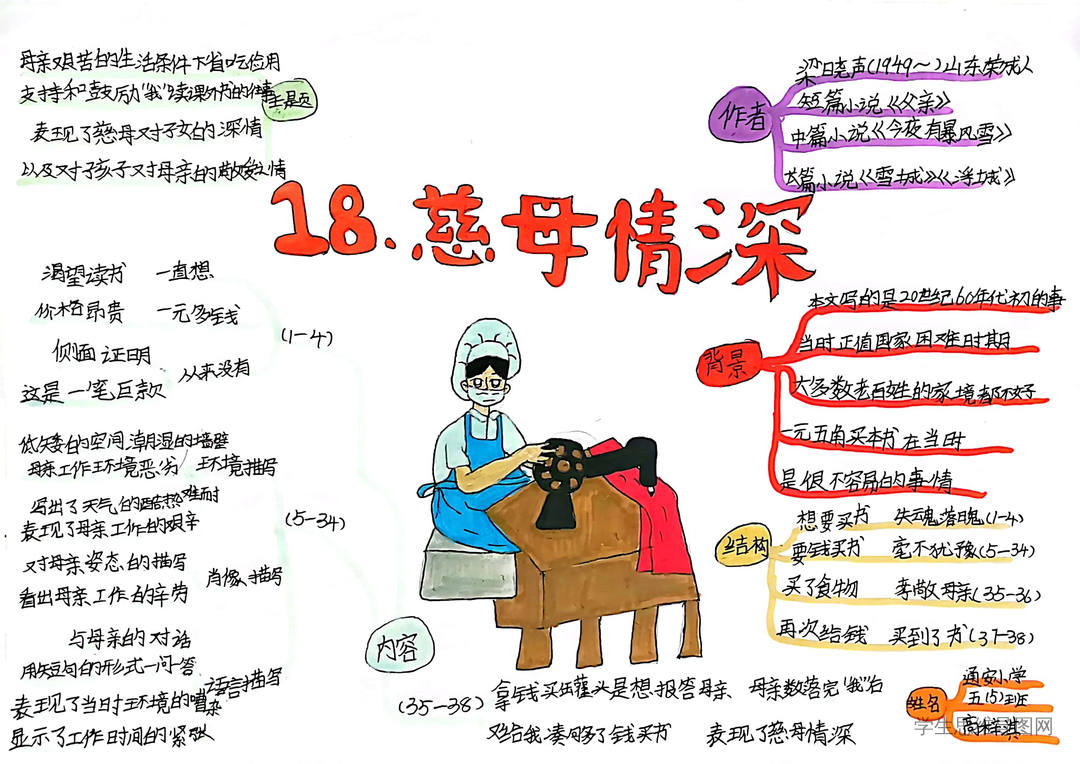 18.慈母情深
母亲艰苦的生活条件下省吃俭用
支持和鼓励“我”读课外书的事情
表现了慈母对子女的深情
以及对子孩子对母亲的敬爱之情
主题
作者
梁晓声(1949～)山东荣成人
短篇小说《父亲》
中篇小说《今夜有暴风雪》
长篇小说《雪城》《浮城》
背景
本文写的是20世纪60年代初的事
当时正值国家困难时期
大多数老百姓的家境都不好
一元五角买本书在当时
是很不容易的事情
结构
想要买书 失魂落魄(1-4)
要钱买书 毫不犹豫(5-34)
买了食物 孝敬母亲(35-36)
再次给钱 买到了书(37-38)
内容
(1-4)
渴望读书 一直想
价格昂贵 一元多钱
侧面证明
这是一笔巨款 从来没有
(5-34)
低矮的空间潮湿的墙壁
母亲工作环境恶劣 环境描写
写出了天气的酷热难耐
表现了母亲工作的艰辛
对母亲姿态的描写
看出母亲工作的辛劳 肖像描写
与母亲的对话
用短句的形式一问一答
表现了当时环境的嘈杂 语言描写
显示了工作时间的紧张
(35-38)
拿钱买出罐头是想报答母亲 母亲数落完“我”后
又给我凑够了钱买书 表现了慈母情深
姓名
通安小学
五(5)班
学生思维导图网